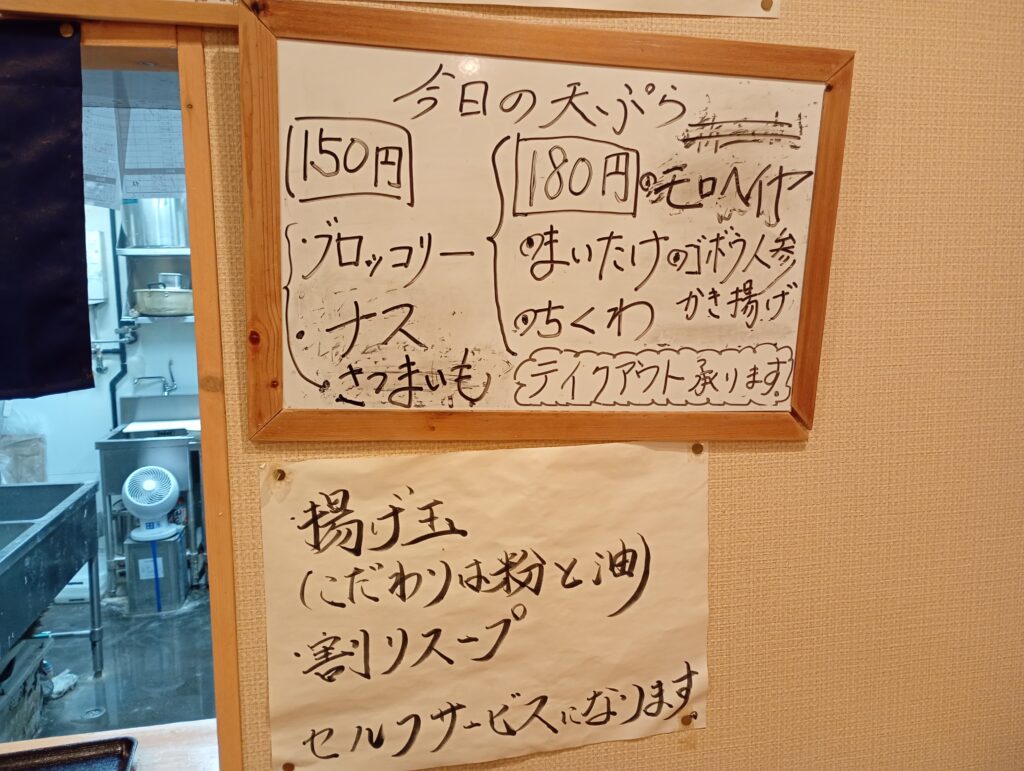 今日の天ぷら
150円
・ブロッコリー
・ナス
・さつまいも
180円
・モロヘイヤ
・まいたけ
・ゴボウ人参
かき揚げ
・ちくわ
テイクアウト承ります。
・揚げ玉
(こだわりは粉と油)
・割りスープ
セルフサービスになります。